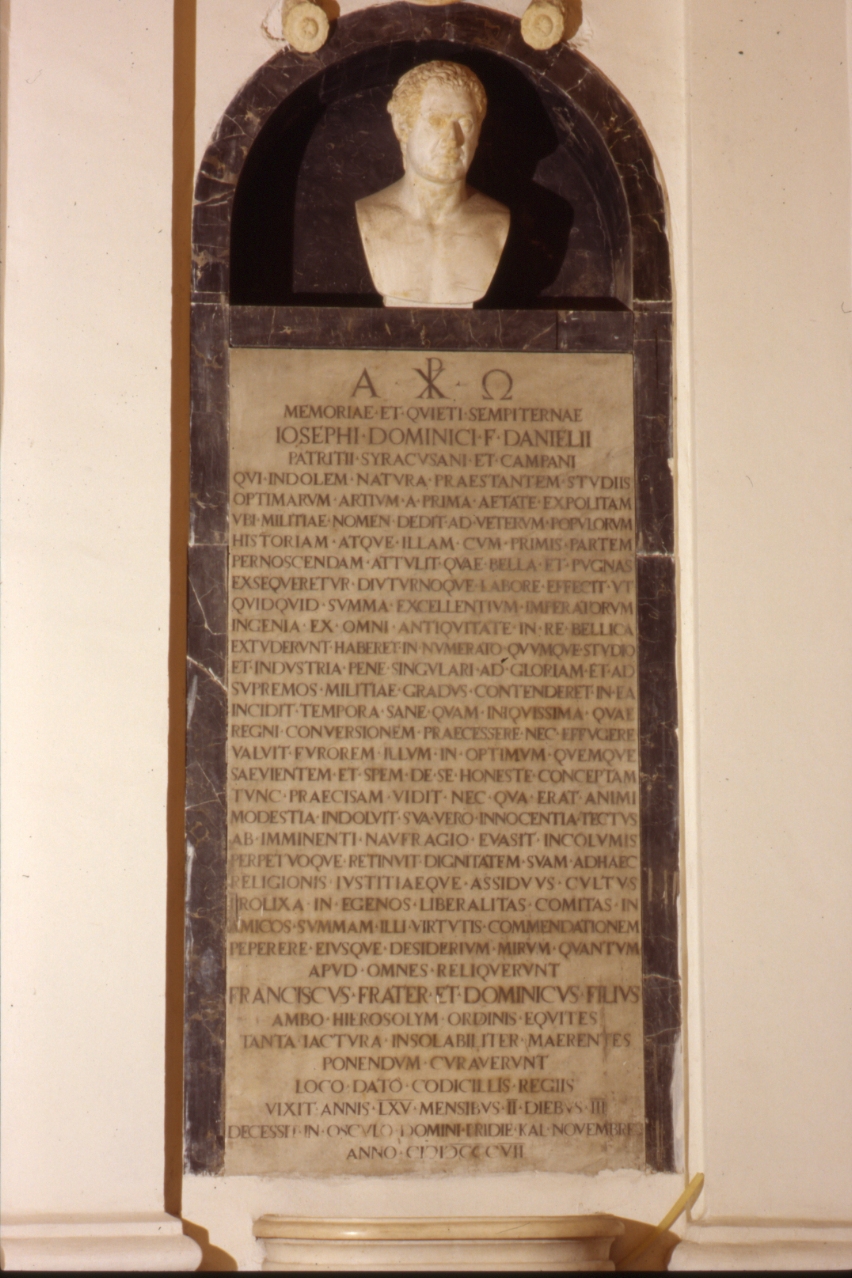 Α · ☧ · Ω
MEMORIAE·ET·QVIETI·SEMPITERNAE
IOSEPHI·DOMINICI·F·DANIELII
PATRITII·SYRACVSANI·ET·CAMPANI
QVI·INDOLEM·NATVRA·PRAESTANTEM·STVDIIS
OPTIMARVM·ARTIVM·A·PRIMA·AETATE·EXPOLITAM
VBI·MILITIAE·NOMEN·DEDIT·AD·VETERVM·POPVLORVM
HISTORIAM·ATQVE·ILLAM·CVM·PRIMIS·PARTEM
PERNOSCENDAM·ATTVLIT·QVAE·BELLA·ET·PVGNAS
EXSEQVERETVR·DIVTVRNOQVE·LABORE·EFFECIT·VT
QVIDQVID·SVMMA·EXCELLENTIVM·IMPERATORVM
INGENIA·EX·OMNI·ANTIQVITATE·IN·RE·BELLICA
EXTVDERVNT·HABERET·IN·NVMERATO·QVVMQVE·STVDIO
ET·INDVSTRIA·PENE·SINGVLARI·AD·GLORIAM·ET·AD
SVPREMOS·MILITIAE·GRADVS·CONTENDERET·IN·EA
INCIDIT·TEMPORA·SANE·QVAM·INIQVISSIMA·QVAE
REGNI·CONVERSIONEM·PRAECESSERE·NEC·EFFVGERE
VALVIT·FVROREM·ILLVM·IN·OPTIMVM·QVEMQVE
SAEVIENTEM·ET·SPEM·DE·SE·HONESTE·CONCEPTAM
TVNC·PRAECISAM·VIDIT·NEC·QVA·ERAT·ANIMI
MODESTIA·INDOLVIT·SVA·VERO·INNOCENTIA·TECTVS
AB·IMMINENTI·NAVFRAGIO·EVASIT·INCOLVMIS
PERPETVOQVE·RETINVIT·DIGNITATEM·SVAM·ADHAEC
RELIGIONIS·IVSTITIAEQVE·ASSIDVVS·CVLTVS
PROLIXA·IN·EGENOS·LIBERALITAS·COMITAS·IN
AMICOS·SVMMAM·ILLI·VIRTVTIS·COMMENDATIONEM
PEPERERE·EIVSQVE·DESIDERIVM·MIRVM·QVANTVM
APVD·OMNES·RELIQVERVNT
FRANCISCVS·FRATER·ET·DOMINICVS·FILIVS
AMBO·HIEROSOLYM·ORDINIS·EQVITES
TANTA·IACTVRA·INSOLABILITER·MAERENTES
PONENDVM·CVRAVERVNT
LOCO·DATO·CODICILLIS·REGIIS
VIXIT·ANNIS·LXV·MENSIBVS·II·DIEBVS·III
DECESSIT·IN·OSCVLO·DOMINI·PRIDIE·KAL·NOVEMBRES
ANNO·CIƆIƆCCCVII